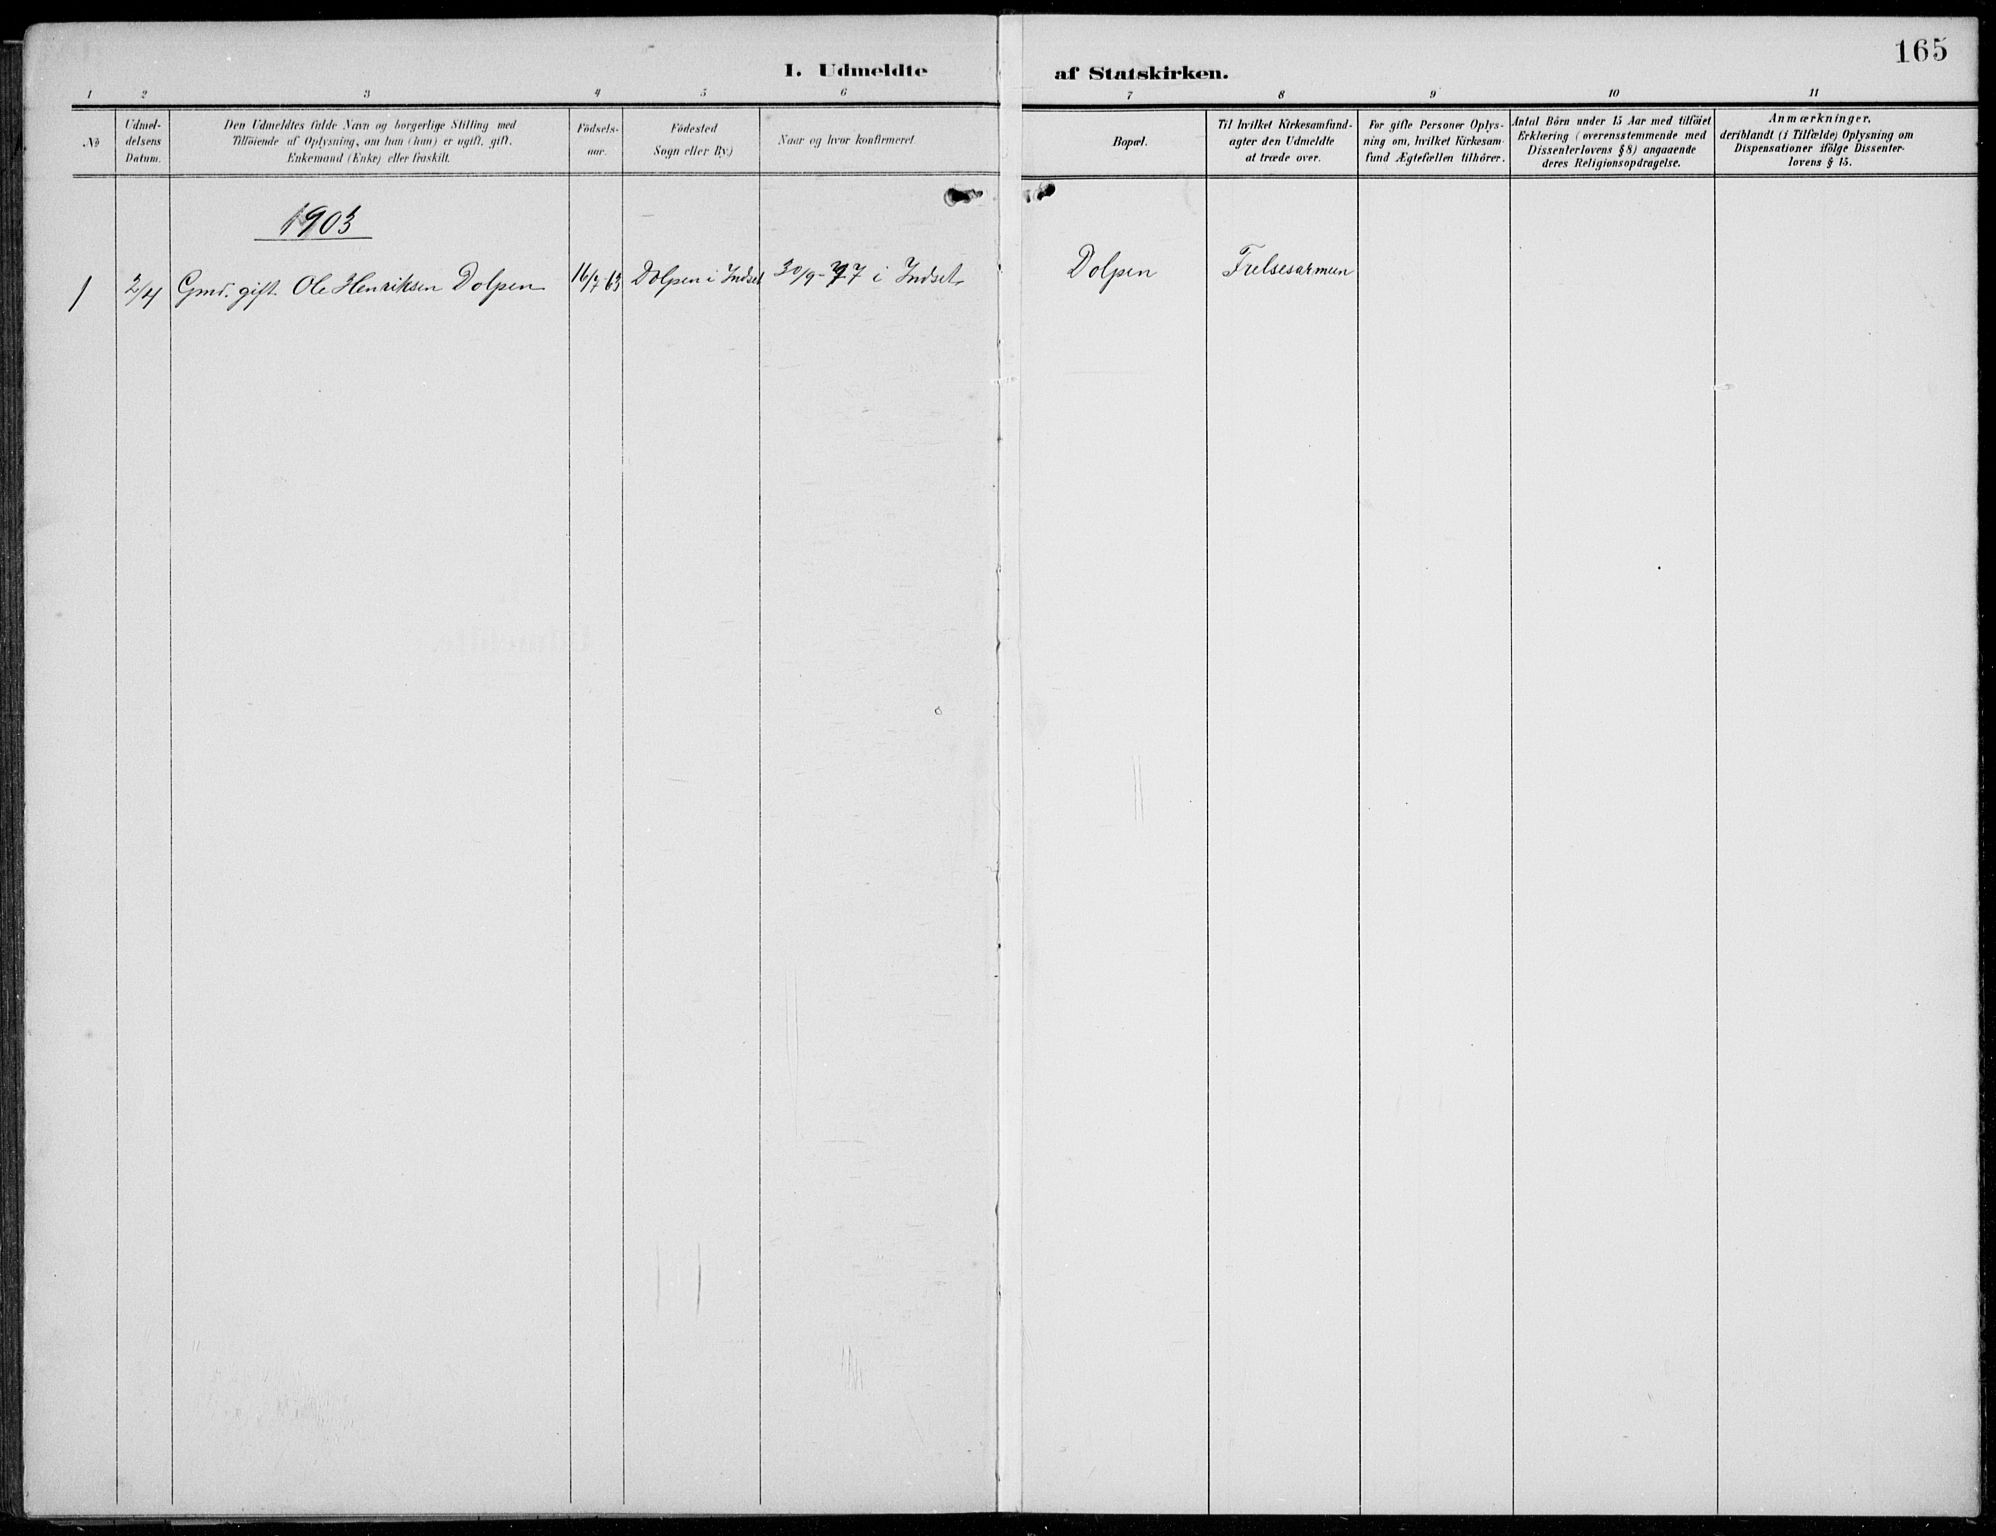 165
I. Udmeldte af Statskirken.
1 2 3 4 5 6 7 8 9 10 11
No
Udmel-
delsens
Datum.
Den Udmeldtes fulde Navn og borgerlige Stilling med
Tilföiende af Oplysning, om han (hun) er ugift, gift,
Enkemand (Enke) eller fraskilt.
Födsels-
aar.
Födested
Sogn eller By.)
Naar og hvor konfirmeret
Bopæl.
Til hvilket Kirkesamfund
agter den Udmeldte
at træde over.
For gifte Personer Oplys-
ning om, hvilket Kirkesam-
fund Ægtefællen tilhörer.
Antal Börn under 15 Aar med tilföiet
Erklæring (overensstemmende med
Dissenterlovens § 8) angaaende
deres Religionsopdragelse.
Anmærkninger,
deriblandt (i Tilfælde) Oplysning om
Dispensationer ifölge Dissenter-
lovens § 15.
1903
1 2/4 Gmd. gift. Ole Henriksen Dolpen 16/7 63 Dolpen i Indset 30/9-77 i Indset. Dolpen Frelsesarmeen